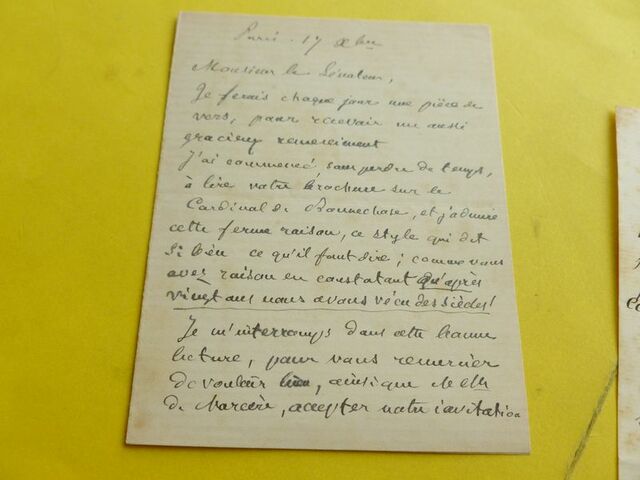 Paris. 17 Xbre
Monsieur le Sénateur,
Je ferais chaque jour une pièce de
vers, pour recevoir un aussi
gracieux remerciment
J'ai commencé sans perdre de temps,
à lire votre brochure sur le
Cardinal de Bonnechose, et j'admire
cette ferme raison, ce style qui dit
si bien ce qu'il faut dire ; comme vous
avez raison en constatant qu'après
vingt ans nous avons vécu des siècles!
Je m'interromps dans cette bonne
lecture, pour vous remercier
de vouloir bien, ainsi que
de Marcère, accepter notre invitation